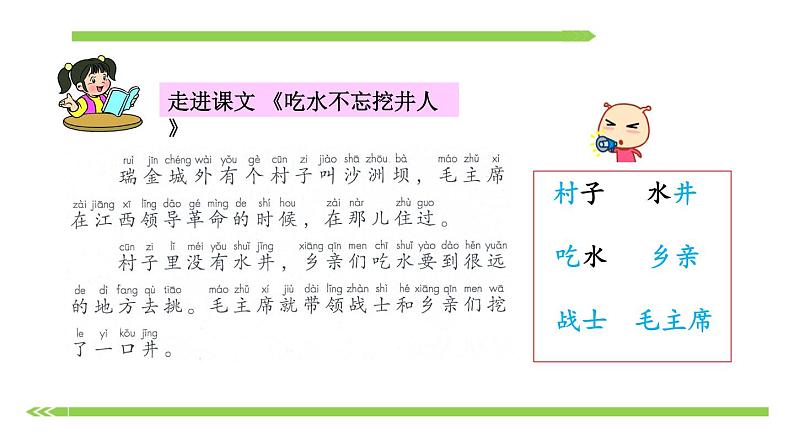 走进课文 《吃水不忘挖井人
》
ruì jīn chéng wài yǒu gè cūn zi jiào shā zhōu bà máo zhǔ xí
瑞金城外有个村子叫沙洲坝，毛主席
zài jiāng xī lǐng dǎo gé mìng de shí hou zài nàr zhù guo
在江西领导革命的时候，在那儿住过。
cūn zi lǐ méi yǒu shuǐ jǐng xiāng qīn men chī shuǐ yào dào hěn yuǎn
村子里没有水井，乡亲们吃水要到很远
de dì fang qù tiāo máo zhǔ xí jiù dài lǐng zhàn shì hé xiāng qīn men wā
的地方去挑。毛主席就带领战士和乡亲们挖
le yì kǒu jǐng
了一口井。
村子 水井
吃水 乡亲
战士 毛主席